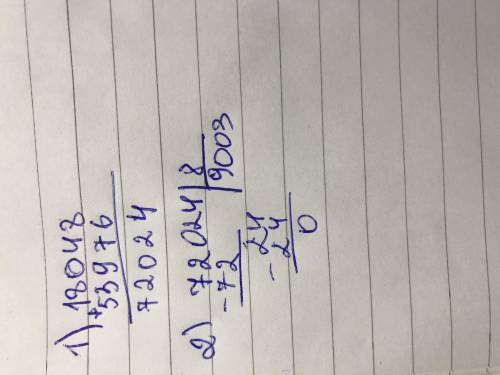 1) 18048
+53976
72024
2) 72024 | 8
-72 | 9003
-24
24
0